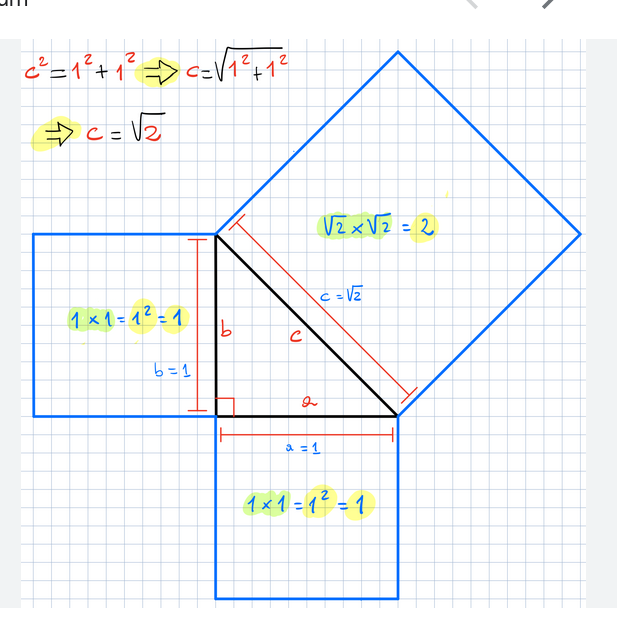 um
c² = 1² + 1² ⇒ c = √(1² + 1²)
⇒ c = √2
√2 × √2 = 2
c = √2
1 × 1 = 1² = 1
b
c
b = 1
a
a = 1
1 × 1 = 1² = 1